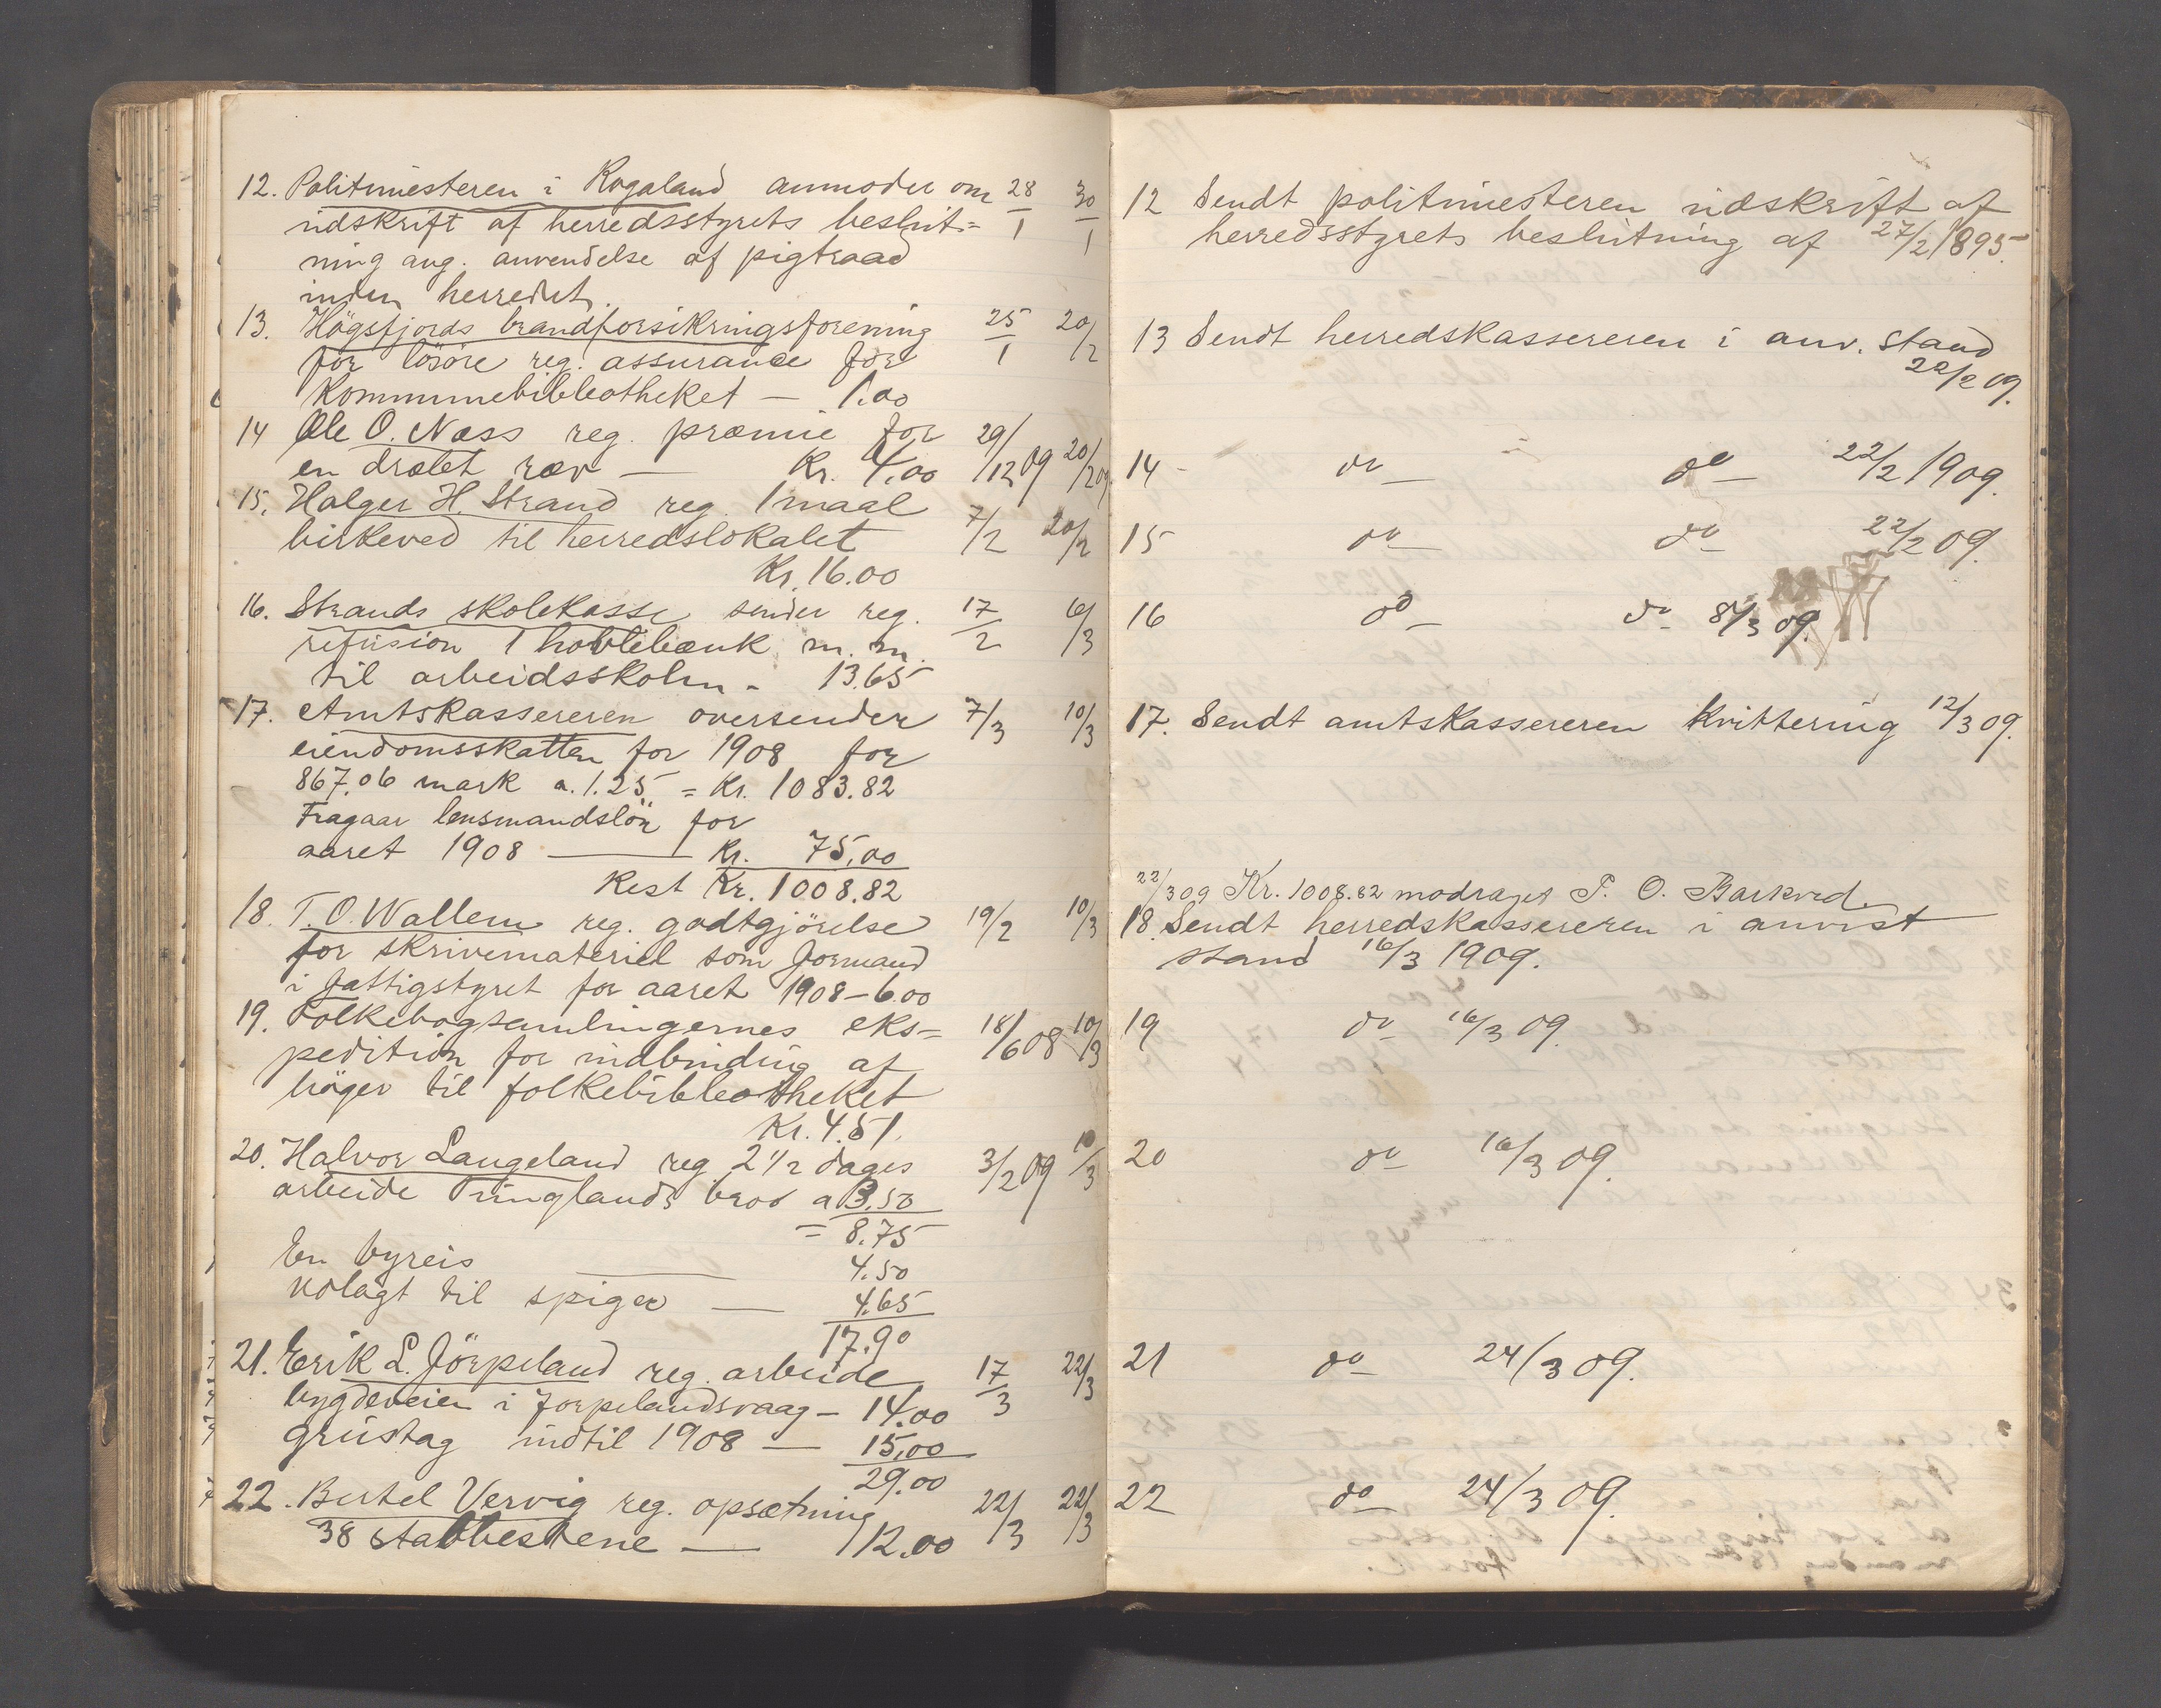 12. Politimesteren i Rogaland anmoder om 28/1 30/1
udskrift af herredsstyrets beslut=
ning ang. anvendelse af pigtraad
inden herredet.
13. Högsfjords brandforsikringsforening 25/1 20/2
for lösöre reg. assurance for
Kommunebibleotheket — 1.00
14 Ole O. Næss reg. præmie for 29/12 09 20/2 09
en dræbt ræv — Kr. 4.00
15. Holger H. Strand reg. 1 maal
birkeved til herredslokalet 7/2 20/2
Kr. 16.00
16. Strands skolekasse sender reg. 17/2 6/3
refusion 1 høvlebænk m. m.
til arbeidsskolen - 13.65
17. Amtskassereren oversender 7/3 10/3
eiendomsskatten for 1908 for
867.06 mark a. 1.25 = Kr. 1083.82
Fragaar lensmandslön for
aaret 1908 — Kr. 75.00
Rest Kr. 1008.82
18. T. O. Wallem reg. godtgjörelse 19/2 10/3
for skrivemateriel som formand
i fattigstyret for aaret 1908 – 6.00
19. Folkebogsamlingernes eks= 18/6 08 10/3
pedition for indbinding af
böger til folkebibleotheket
Kr. 4.51.
20. Halvor Langeland reg. 2 1/2 dages 3/2 09 10/3
arbeide Tunglands bro a 3.50
= 8.75
En byreis — 4.50
Udlagt til spiger — 4.65
17.90
21. Erik L. Jörpeland reg. arbeide 17/3 22/3
bygdeveien i Jorpelandsvaag – 14.00
Grustag indtil 1908 — 15.00
29.00
22. Bertel Vervig reg. opsætning 22/3 22/3
38 stabbestene — 12.00
12 Sendt politimesteren udskrift af
herredsstyrets beslutning af 27/2 1895.
13 Sendt herredskassereren i anv. stand
22/2 09.
14 - do — do — 22/2 1909.
15 do — do — 22/2 09.
16 do — do — 8/3 09.
17. Sendt amtskassereren kvittering 12/3 09.
22/3 09 Kr. 1008.82 modraget T. O. Barkved.
18. Sendt herredskassereren i anvist
stand 16/3 1909.
19 do — 16/3 09.
20 do — 16/3 09.
21 do — 24/3 09.
22 do — 24/3 09.